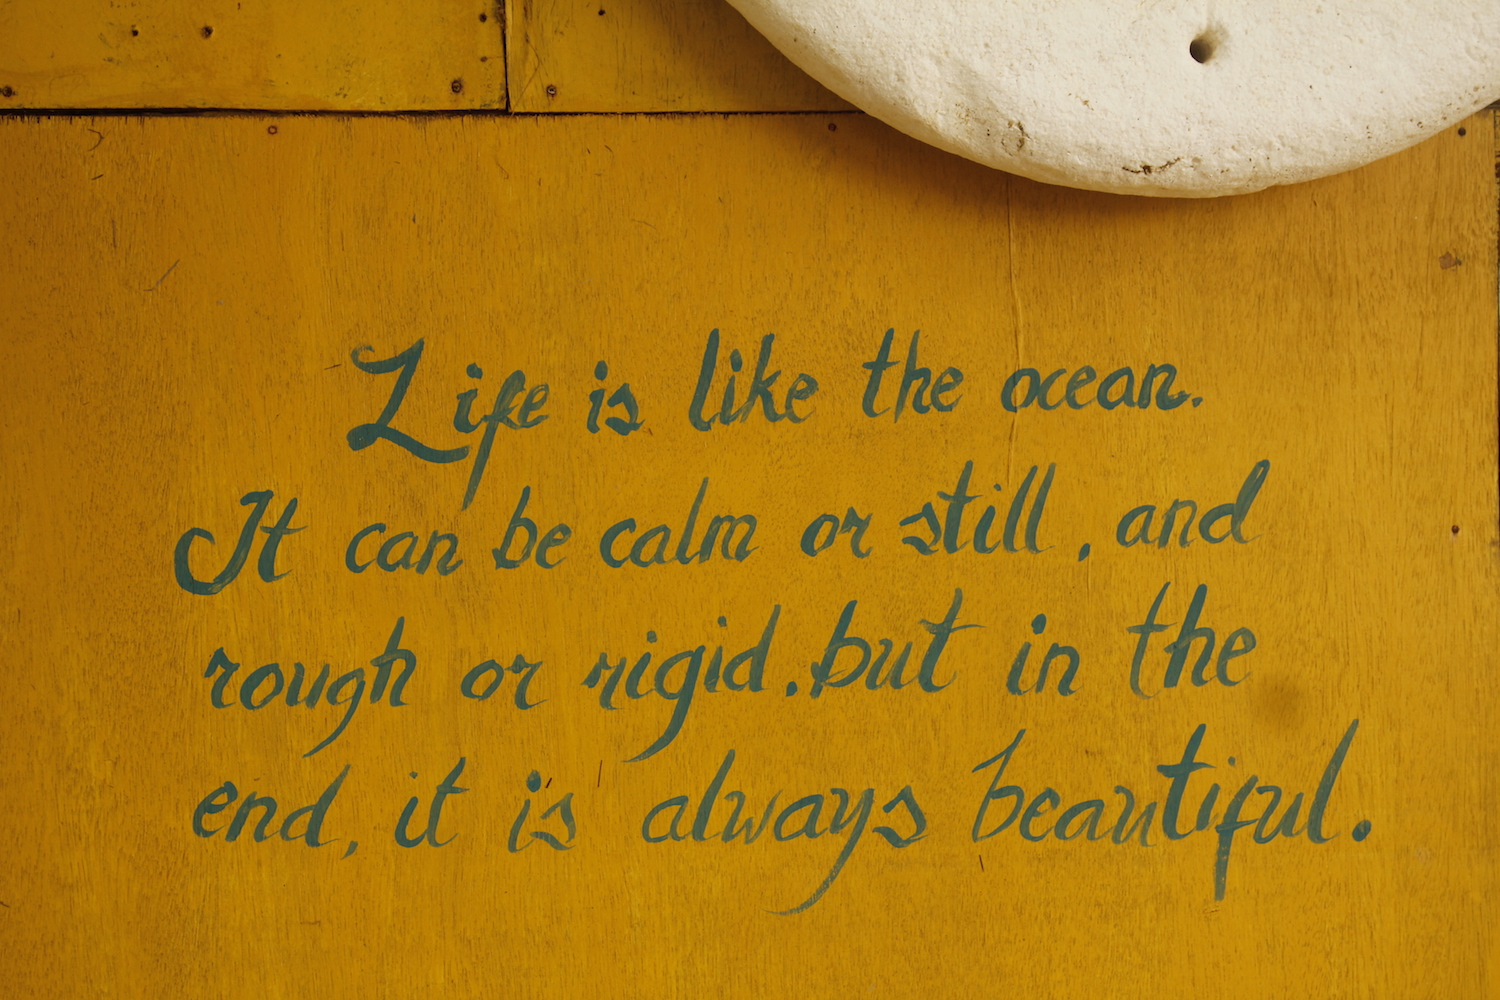 Life is like the ocean.
It can be calm or still, and
rough or rigid.but in the
end, it is always beautiful.